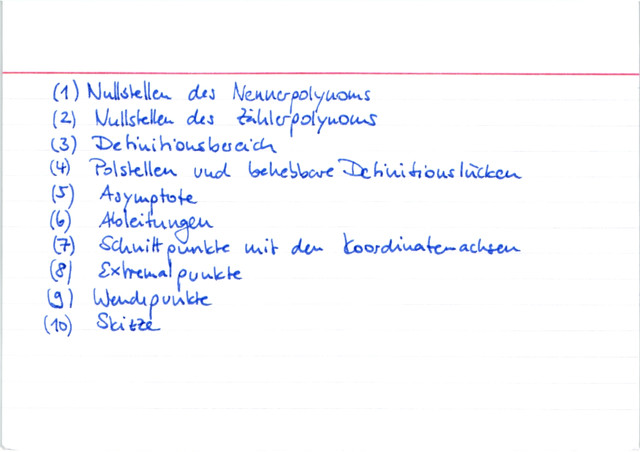 (1) Nullstellen des Nennerpolynoms
(2) Nullstellen des Zählerpolynoms
(3) Definitionsbereich
(4) Polstellen und behebbare Definitionslücken
(5) Asymptote
(6) Ableitungen
(7) Schnittpunkte mit den Koordinatenachsen
(8) Extremalpunkte
(9) Wendepunkte
(10) Skizze